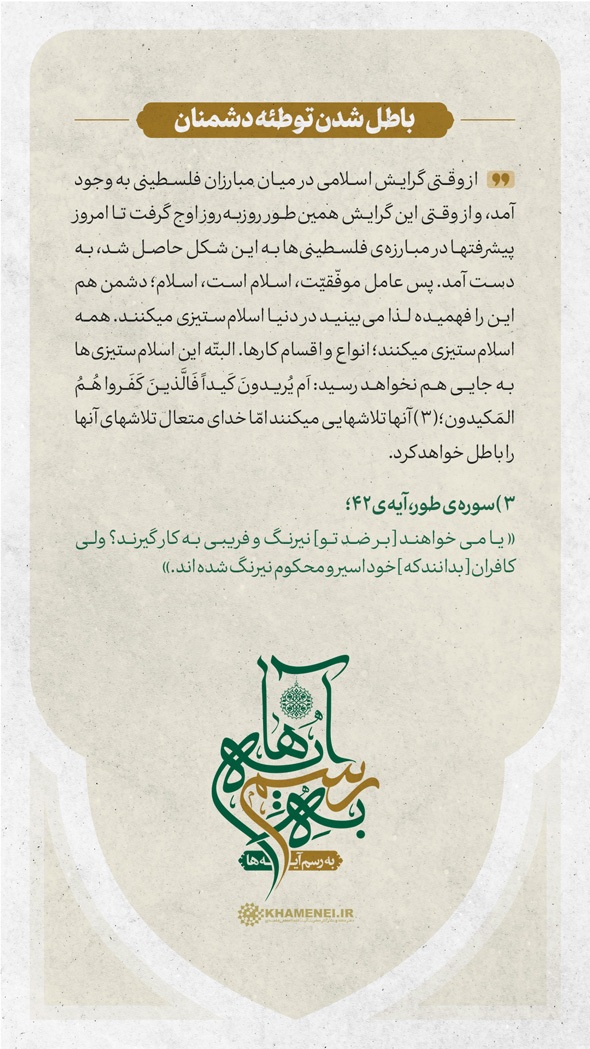 باطل شدن توطئه دشمنان
از وقتی گرایش اسلامی در میان مبارزان فلسطینی به وجود
آمد، و از وقتی این گرایش همین طور روزبه‌روز اوج گرفت تا امروز
پیشرفتها در مبارزه‌ی فلسطینی‌ها به این شکل حاصل شد، به
دست آمد. پس عامل موفّقیّت، اسلام است، اسلام؛ دشمن هم
این را فهمیده لذا می‌بینید در دنیا اسلام‌ستیزی میکنند. همه
اسلام‌ستیزی میکنند؛ انواع و اقسام کارها. البتّه این اسلام‌ستیزی‌ها
به جایی هم نخواهد رسید: اَم یُریدونَ کَیداً فَالَّذینَ کَفَروا هُمُ
المَکیدون؛(۳) آنها تلاشهایی میکنند امّا خدای متعال تلاشهای آنها
را باطل خواهد کرد.
۳) سوره‌ی طور، آیه‌ی ۴۲؛
«یا می‌خواهند [بر ضد تو] نیرنگ و فریبی به کار گیرند؟ ولی
کافران [بدانند که] خود اسیر و محکوم نیرنگ شده‌اند.»
به رسم آیه‌ها
به رسم آیه‌ها
KHAMENEI.IR